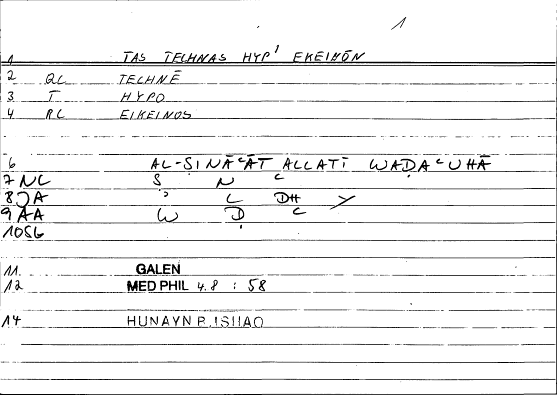 1
1 TAS TECHNAS HYP' EKEINŌN
2 QL TECHNĒ
3 T HYPO
4 RL EIKEINOS
6 AL-ṢINĀʿĀT ALLATĪ WAḌAʿUHĀ
7 NL Ṣ N ʿ
8 JA ʾ L DH Y
9 AA W Ḍ ʿ
10 SG
11. GALEN
12 MED PHIL 4.8 : 58
14 HUNAYN B. ISHAQ